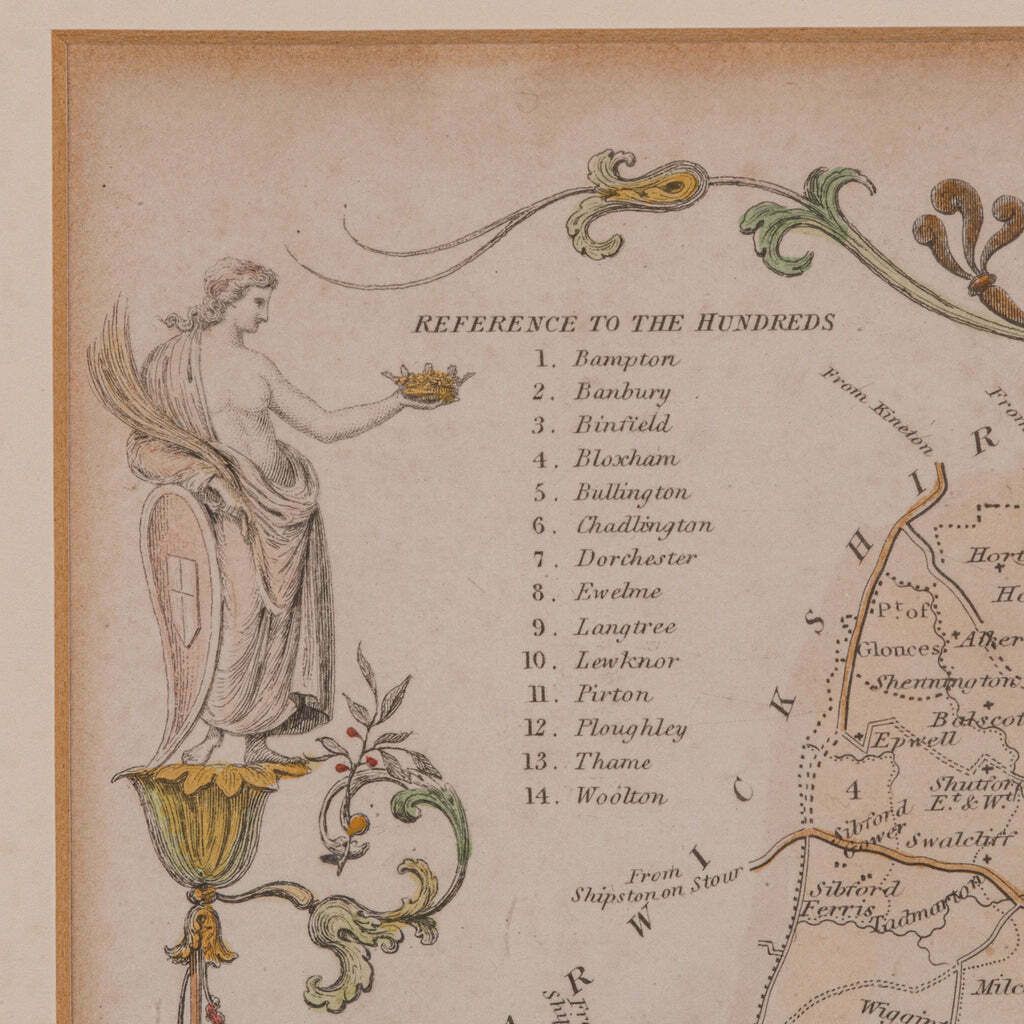 REFERENCE TO THE HUNDREDS
1. Bampton
2. Banbury
3. Binfield
4. Bloxham
5. Bullington
6. Chadlington
7. Dorchester
8. Ewelme
9. Langtree
10. Lewknor
11. Pirton
12. Ploughley
13. Thame
14. Woolton
From Kineton
From
W I C K S H I R
Hort
Pt. of
Glonces.
Alker
Shennington
Balscot
Epwell
4
Shutfor
Et. & Wt.
Sibford
Gower
Swalcliff
From
Shipston on Stour
Sibford
Ferris
Tadmarton
R
Milc
Wiggin